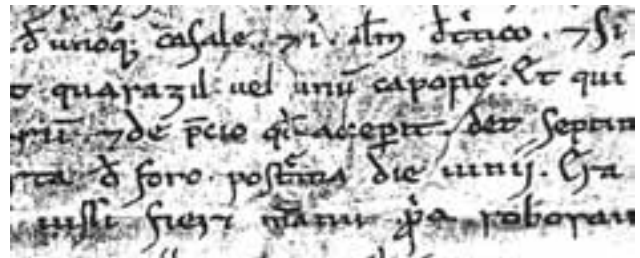 đ unoqͥ casale. ⁊ i alͥm đtͥco. ⁊ si
t quarazil uel unū caponē. Et qui
rū. ⁊ de p̄cio qͥ acceperit det septim
rta đ foro. postͤma die iunij. Era
iussi fieri manu p̄pa roboraui